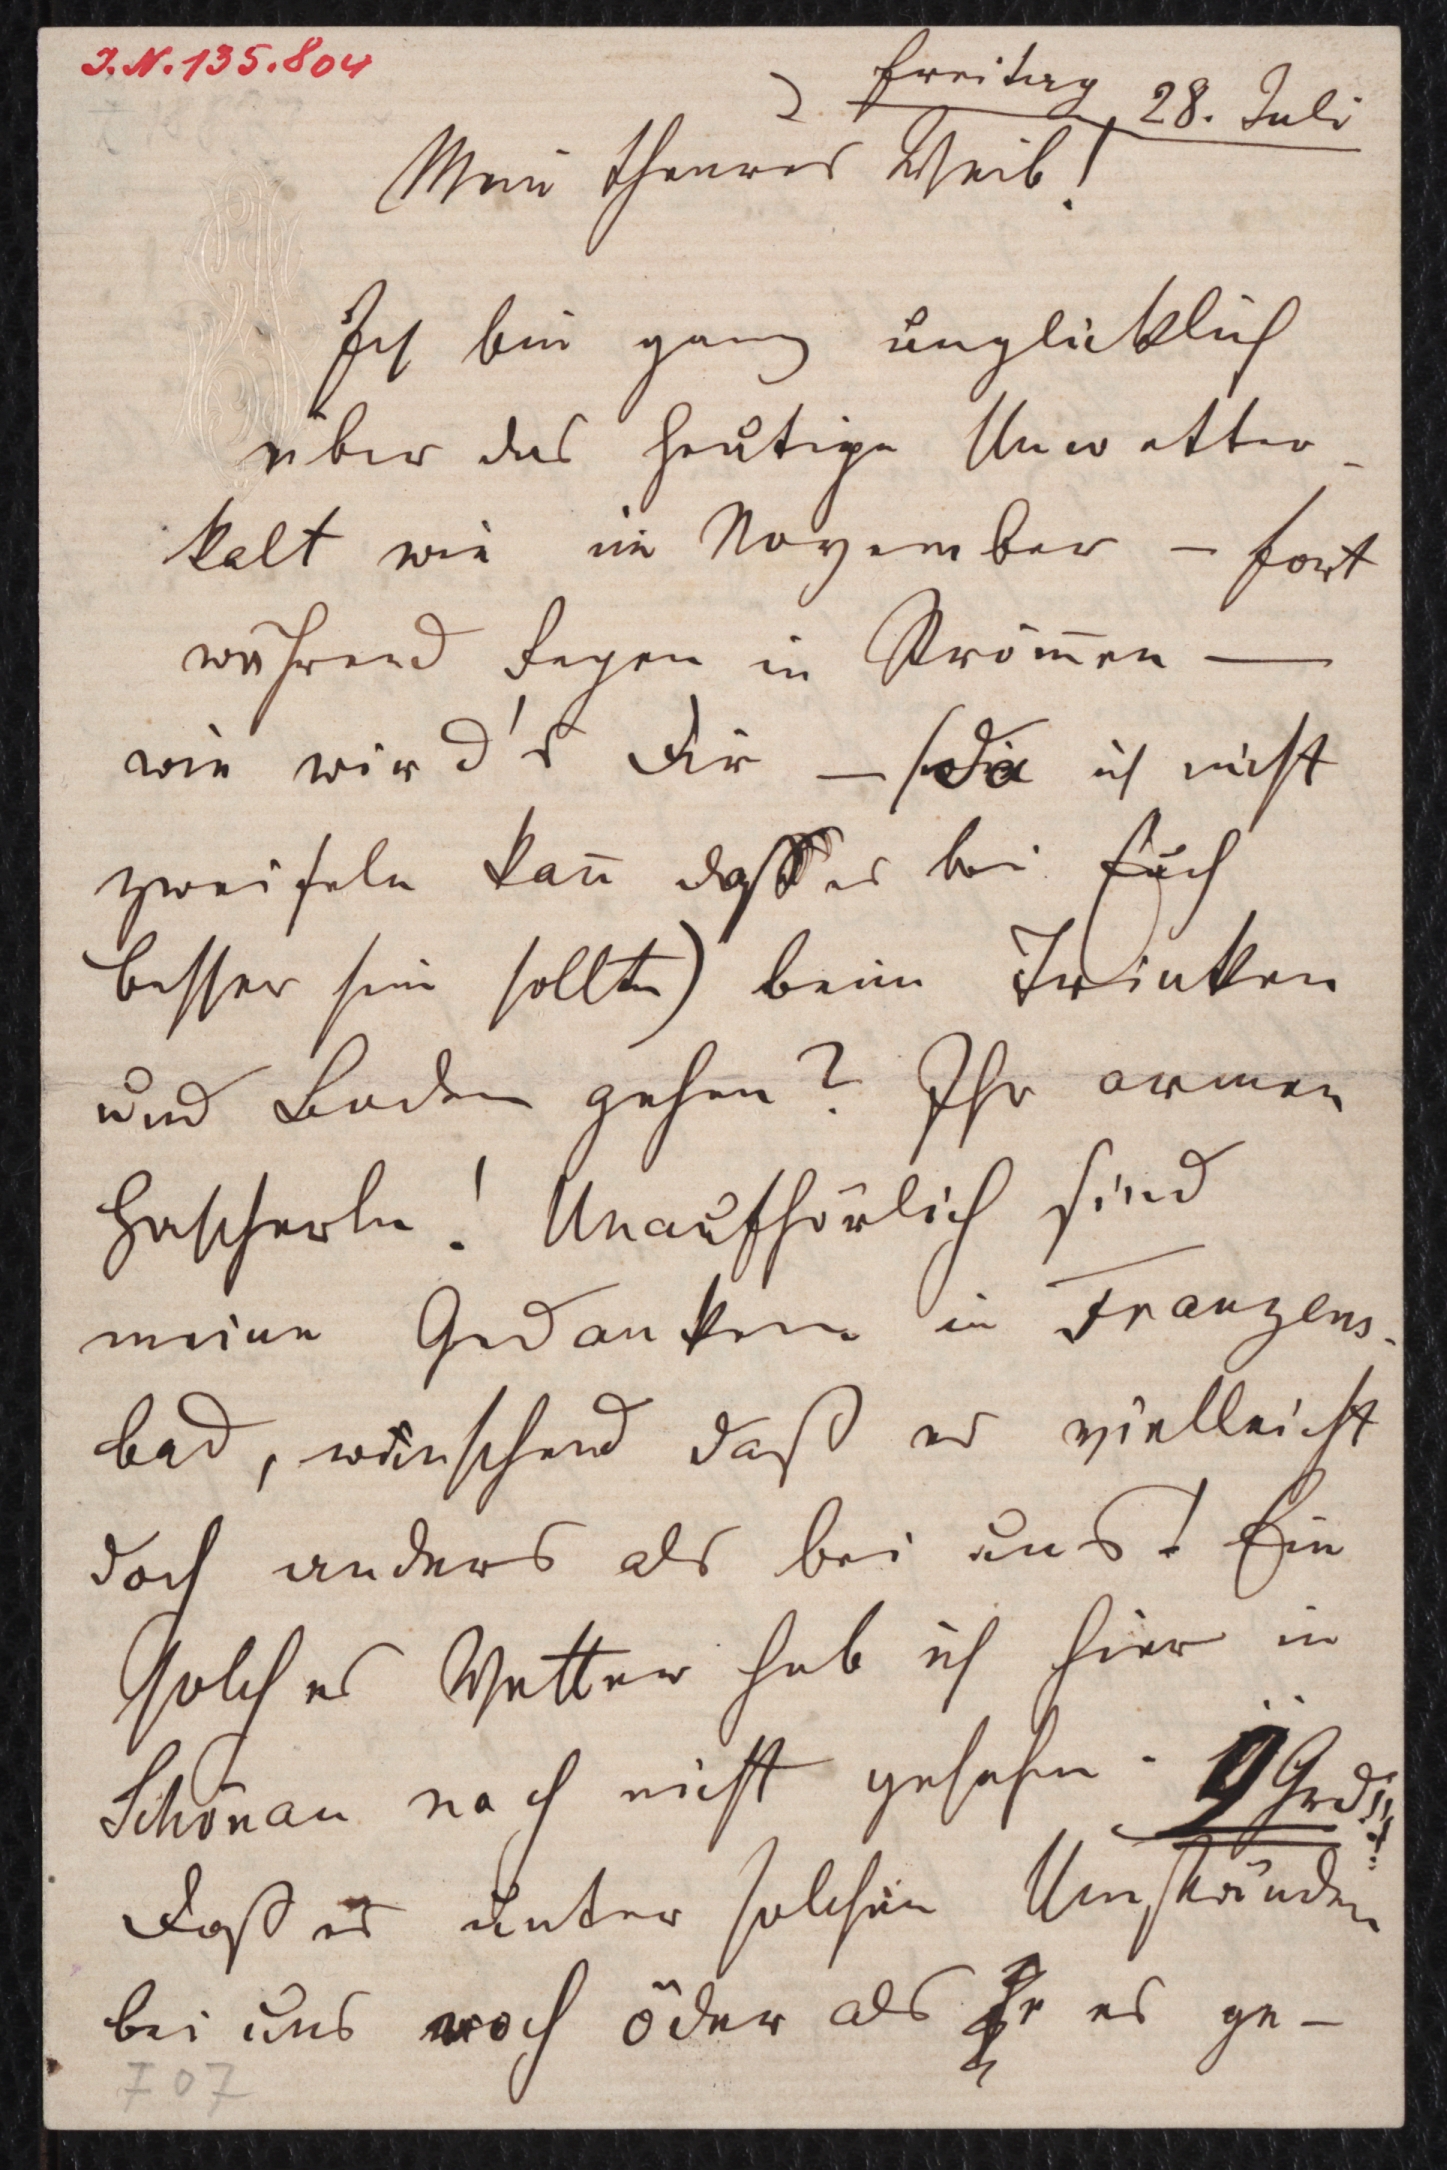 J.N. 135.804
Freitag 28. Juli
Mein theures Weib!
Ich bin ganz unglücklich
über das heutige Unwetter –
kalt wie im November – fort
während Regen in Strömen —
wie wird's Dir – (da ich nicht
zweifeln kann daß es bei Euch
besser sein sollte) beim Trinken
und Baden gehen? Ihr armen
Hascherln! Unaufhörlich sind
meine Gedanken in Franzens-
bad, wünschend daß es vielleicht
doch anders als bei uns! Ein
solches Wetter hab ich hier in
Schönau noch nicht gesehen. 9 Grd!!!
Daß es unter solchen Umständen
bei uns noch öder als es ge-
707